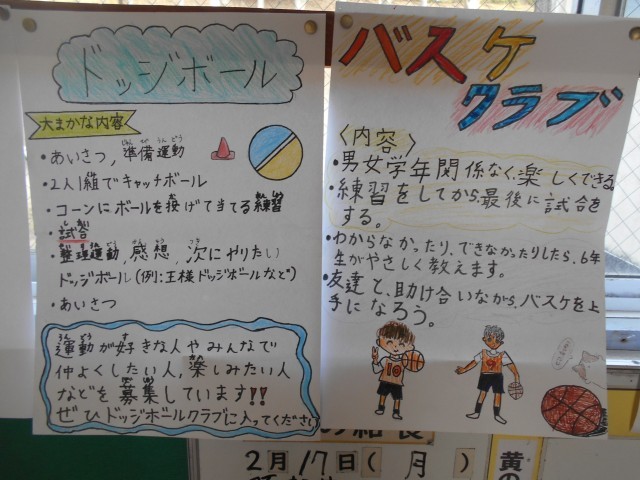 ドッジボール
大まかな内容
・あいさつ,準備運動
・2人1組でキャッチボール
・コーンにボールを投げて当てる練習
・試合
・整理運動,感想,次にやりたい
ドッジボール(例:王様ドッジボールなど)
・あいさつ
運動が好きな人やみんなで
仲よくしたい人,楽しみたい人
などを募集しています!!
ぜひドッジボールクラブに入ってください
バスケ
クラブ
〈内容〉
・男女学年関係なく、楽しくできる
・練習をしてから、最後に試合を
する。
・わからなかったり、できなかったりしたら、6年
生がやさしく教えます。
・友達と、助け合いながら、バスケを上
手になろう。
10
9
2月17日(月)
黄の